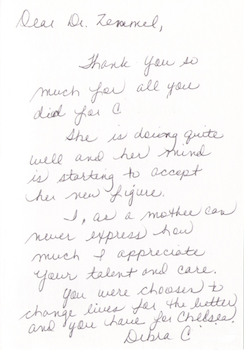 Dear Dr. Zemmel,
Thank you so
much for all you
did for C
She is doing quite
well and her mind
is starting to accept
her new figure.
I, as a mother can
never express how
much I appreciate
your talent and care.
You were chosen to
change lives for the better
and you have for Chelsea.
Debra C